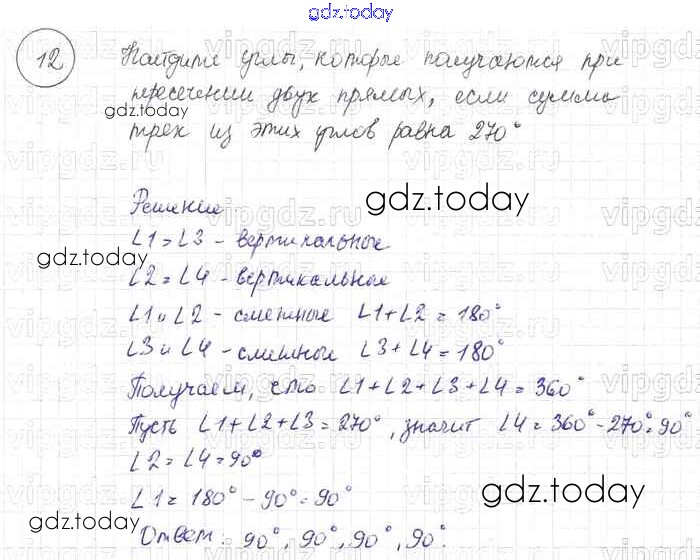 gdz.today
12 Найдите углы, которые получаются при
пересечении двух прямых, если сумма
трех из этих углов равна 270°
Решение
gdz.today
∠1=∠3 - вертикальные
gdz.today
∠2=∠4 - вертикальные
∠1 и ∠2 - смежные ∠1+∠2=180°
∠3 и ∠4 - смежные ∠3+∠4=180°
Получаем, что ∠1+∠2+∠3+∠4=360°
Пусть ∠1+∠2+∠3=270°, значит ∠4=360°-270°=90°
∠2=∠4=90°
∠1=180°-90°=90°
gdz.today
gdz.today
Ответ: 90°, 90°, 90°, 90°.
vipgdz.ru